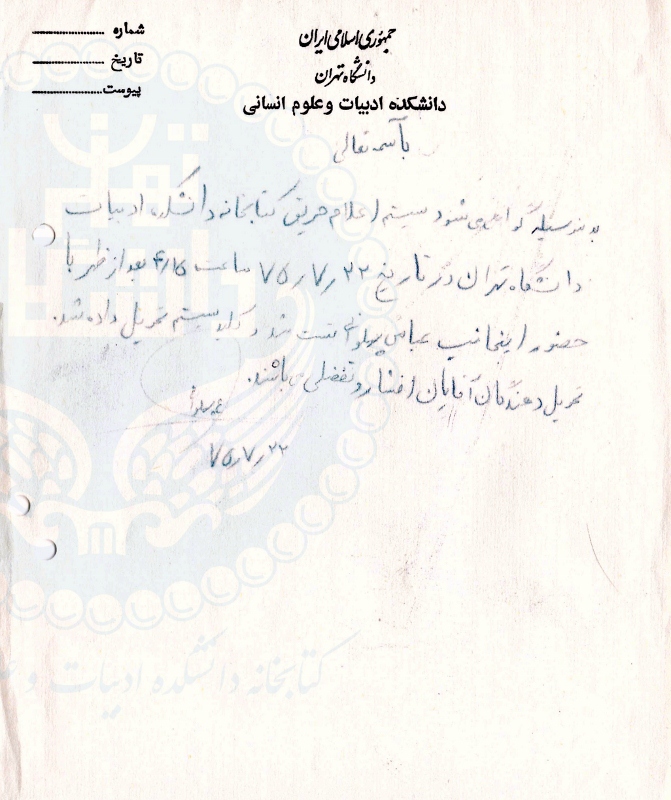 جمهوری اسلامی ایران
دانشگاه تهران
دانشکده ادبیات و علوم انسانی
شماره ....................
تاریخ ....................
پیوست....................
باسمه تعالی
بدینوسیله گواهی میشود سیستم اعلام حریق کتابخانه دانشکده ادبیات
دانشگاه تهران در تاریخ ۷۵٫۷٫۲۲ ساعت ۴/۱۵ بعد از ظهر با
حضور اینجانب عباس تست شد و کلید سیستم تحویل داده شد.
تحویل دهندگان آقایان افشار و تفضلی می باشند.
۷۵٫۷٫۲۲
کتابخانه دانشکده ادبیات و